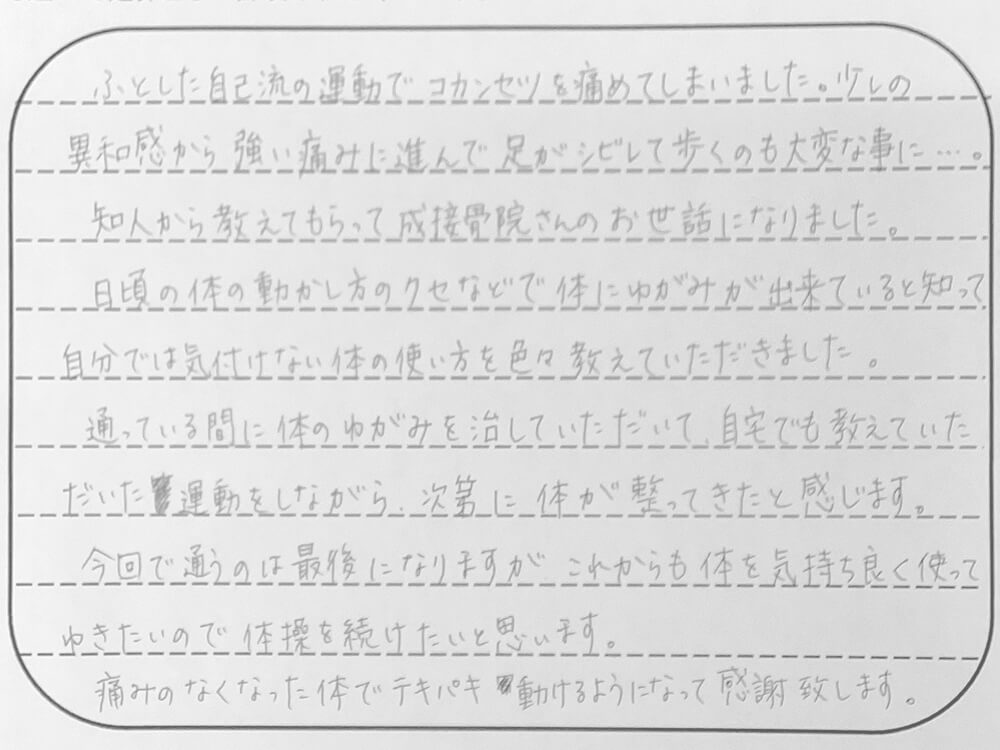 ふとした自己流の運動でコカンセツを痛めてしまいました。少しの
異和感から強い痛みに進んで足がシビレて歩くのも大変な事に…。
知人から教えてもらって成接骨院さんのお世話になりました。
日頃の体の動かし方のクセなどで体にゆがみが出来ていると知って
自分では気付けない体の使い方を色々教えていただきました。
通っている間に体のゆがみを治していただいて、自宅でも教えていた
だいた運動をしながら、次第に体が整ってきたと感じます。
今回で通うのは最後になりますが これからも体を気持ち良く使って
ゆきたいので体操を続けたいと思います。
痛みのなくなった体でテキパキ動けるようになって感謝致します。